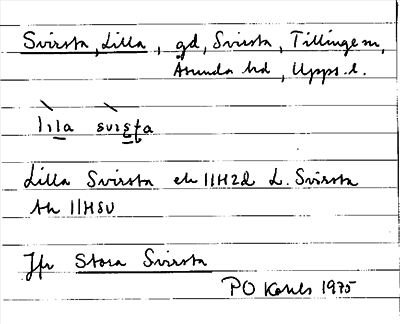 Svirsta, Lilla, gd, Svirsta, Tillinge sn,
Åsunda hd, Upps. l.
lıla svısta
Lilla Svirsta ek 11H2d L. Svirsta
tk 11HSV
Jfr Stora Svirsta
PO 1975